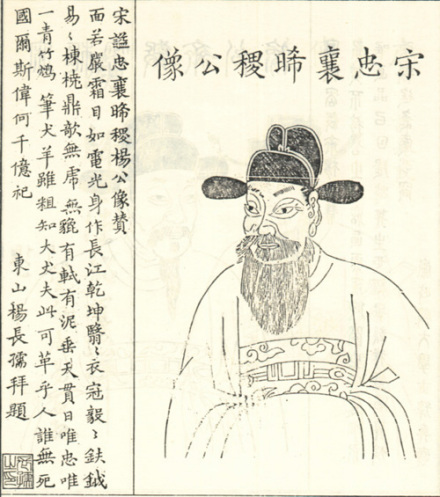 宋忠襄晞稷公像
宋諡忠襄晞稷楊公像贊
面若嚴霜目如電光身作長江乾坤翳〻衣冠毅〻鈇鉞
易〻棟橈鼎欹無虎無貔有軾有泥垂天貫日唯忠唯
一青竹筆犬羊雖粗知大丈夫此可革乎人誰無死
國爾斯偉何千億祀
東山楊長孺拜題